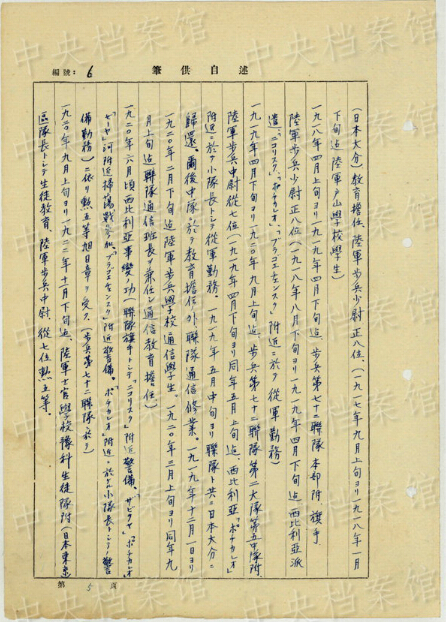 編號: 6
筆供自述
(日本大分)教育擔任、陸軍步兵少尉正八位、(一九一七年九月上旬ヨリ一九一八年一月
下旬迄陸軍戶山學校學生)
一九一八年四月上旬ヨリ一九一九年四月下旬迄 步兵第七十二聯隊本部附 旗手
陸軍步兵少尉正八位(一九一八年八月下旬ヨリ一九一九年四月下旬迄西比利亞派
遣、「ニコリスク」、「ポチカレオ」、「ブラゴエチェンスク」附近ニ於ケル從軍勤務)
一九一九年四月下旬ヨリ一九二〇年九月上旬迄 步兵第七十二聯隊第二大隊第五中隊附、
陸軍步兵中尉從七位(一九一九年四月下旬ヨリ同年五月上旬迄西比利亞「ポチカレオ」
附近ニ於テ小隊長トシテ從軍勤務。一九一九年五月中旬ヨリ聯隊ト共ニ日本大分ニ
歸還。爾後中隊ニ於テ教育擔任外聯隊通信修業。一九一九年十二月一日ヨリ
一九二〇年二月下旬迄陸軍步兵學校通信學生。一九二〇年三月上旬ヨリ同年九
月上旬迄聯隊通信班長ヲ兼任シ通信教育擔任)
一九二〇年六月頃西比利亞事變ノ功(聯隊旗手トシテ「ニコリスク」附近警備、
河附近掃蕩戰參加、「ブラゴエチェンスク」附近警備。「ポチカレオ」附近ニ於ケル小隊長トシテ警
備勤務)ニ依リ勲五等旭日章ヲ受ク(步兵第七十二聯隊ニ於テ)
一九二〇年九月上旬ヨリ一九二二年十月下旬迄、陸軍士官學校豫科生徒隊附(日本東京)
區隊長トシテ生徒教育、陸軍步兵中尉從七位勲五等。
第 5 頁
中央档案馆